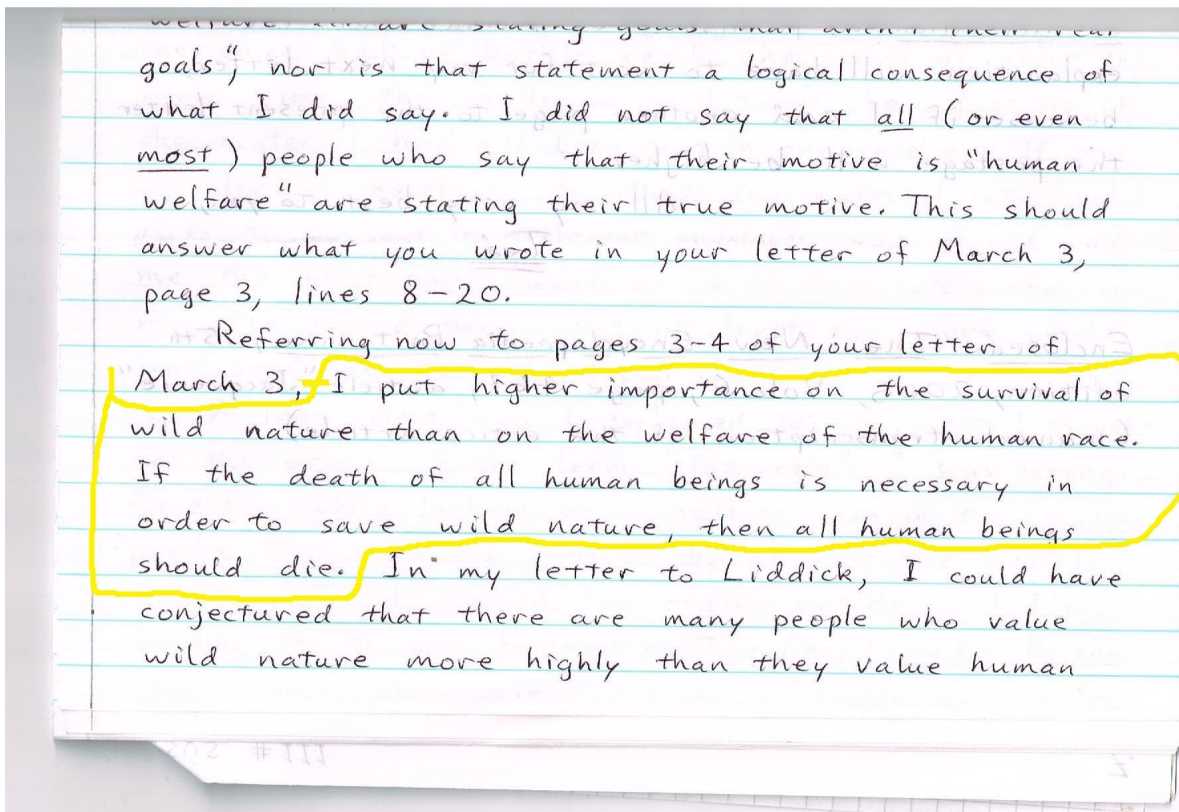 welfare" are stating goals that aren't their real
goals", nor is that statement a logical consequence of
what I did say. I did not say that all (or even
most) people who say that their motive is "human
welfare" are stating their true motive. This should
answer what you wrote in your letter of March 3,
page 3, lines 8-20.
Referring now to pages 3-4 of your letter of
March 3, I put higher importance on the survival of
wild nature than on the welfare of the human race.
If the death of all human beings is necessary in
order to save wild nature, then all human beings
should die. In my letter to Liddick, I could have
conjectured that there are many people who value
wild nature more highly than they value human